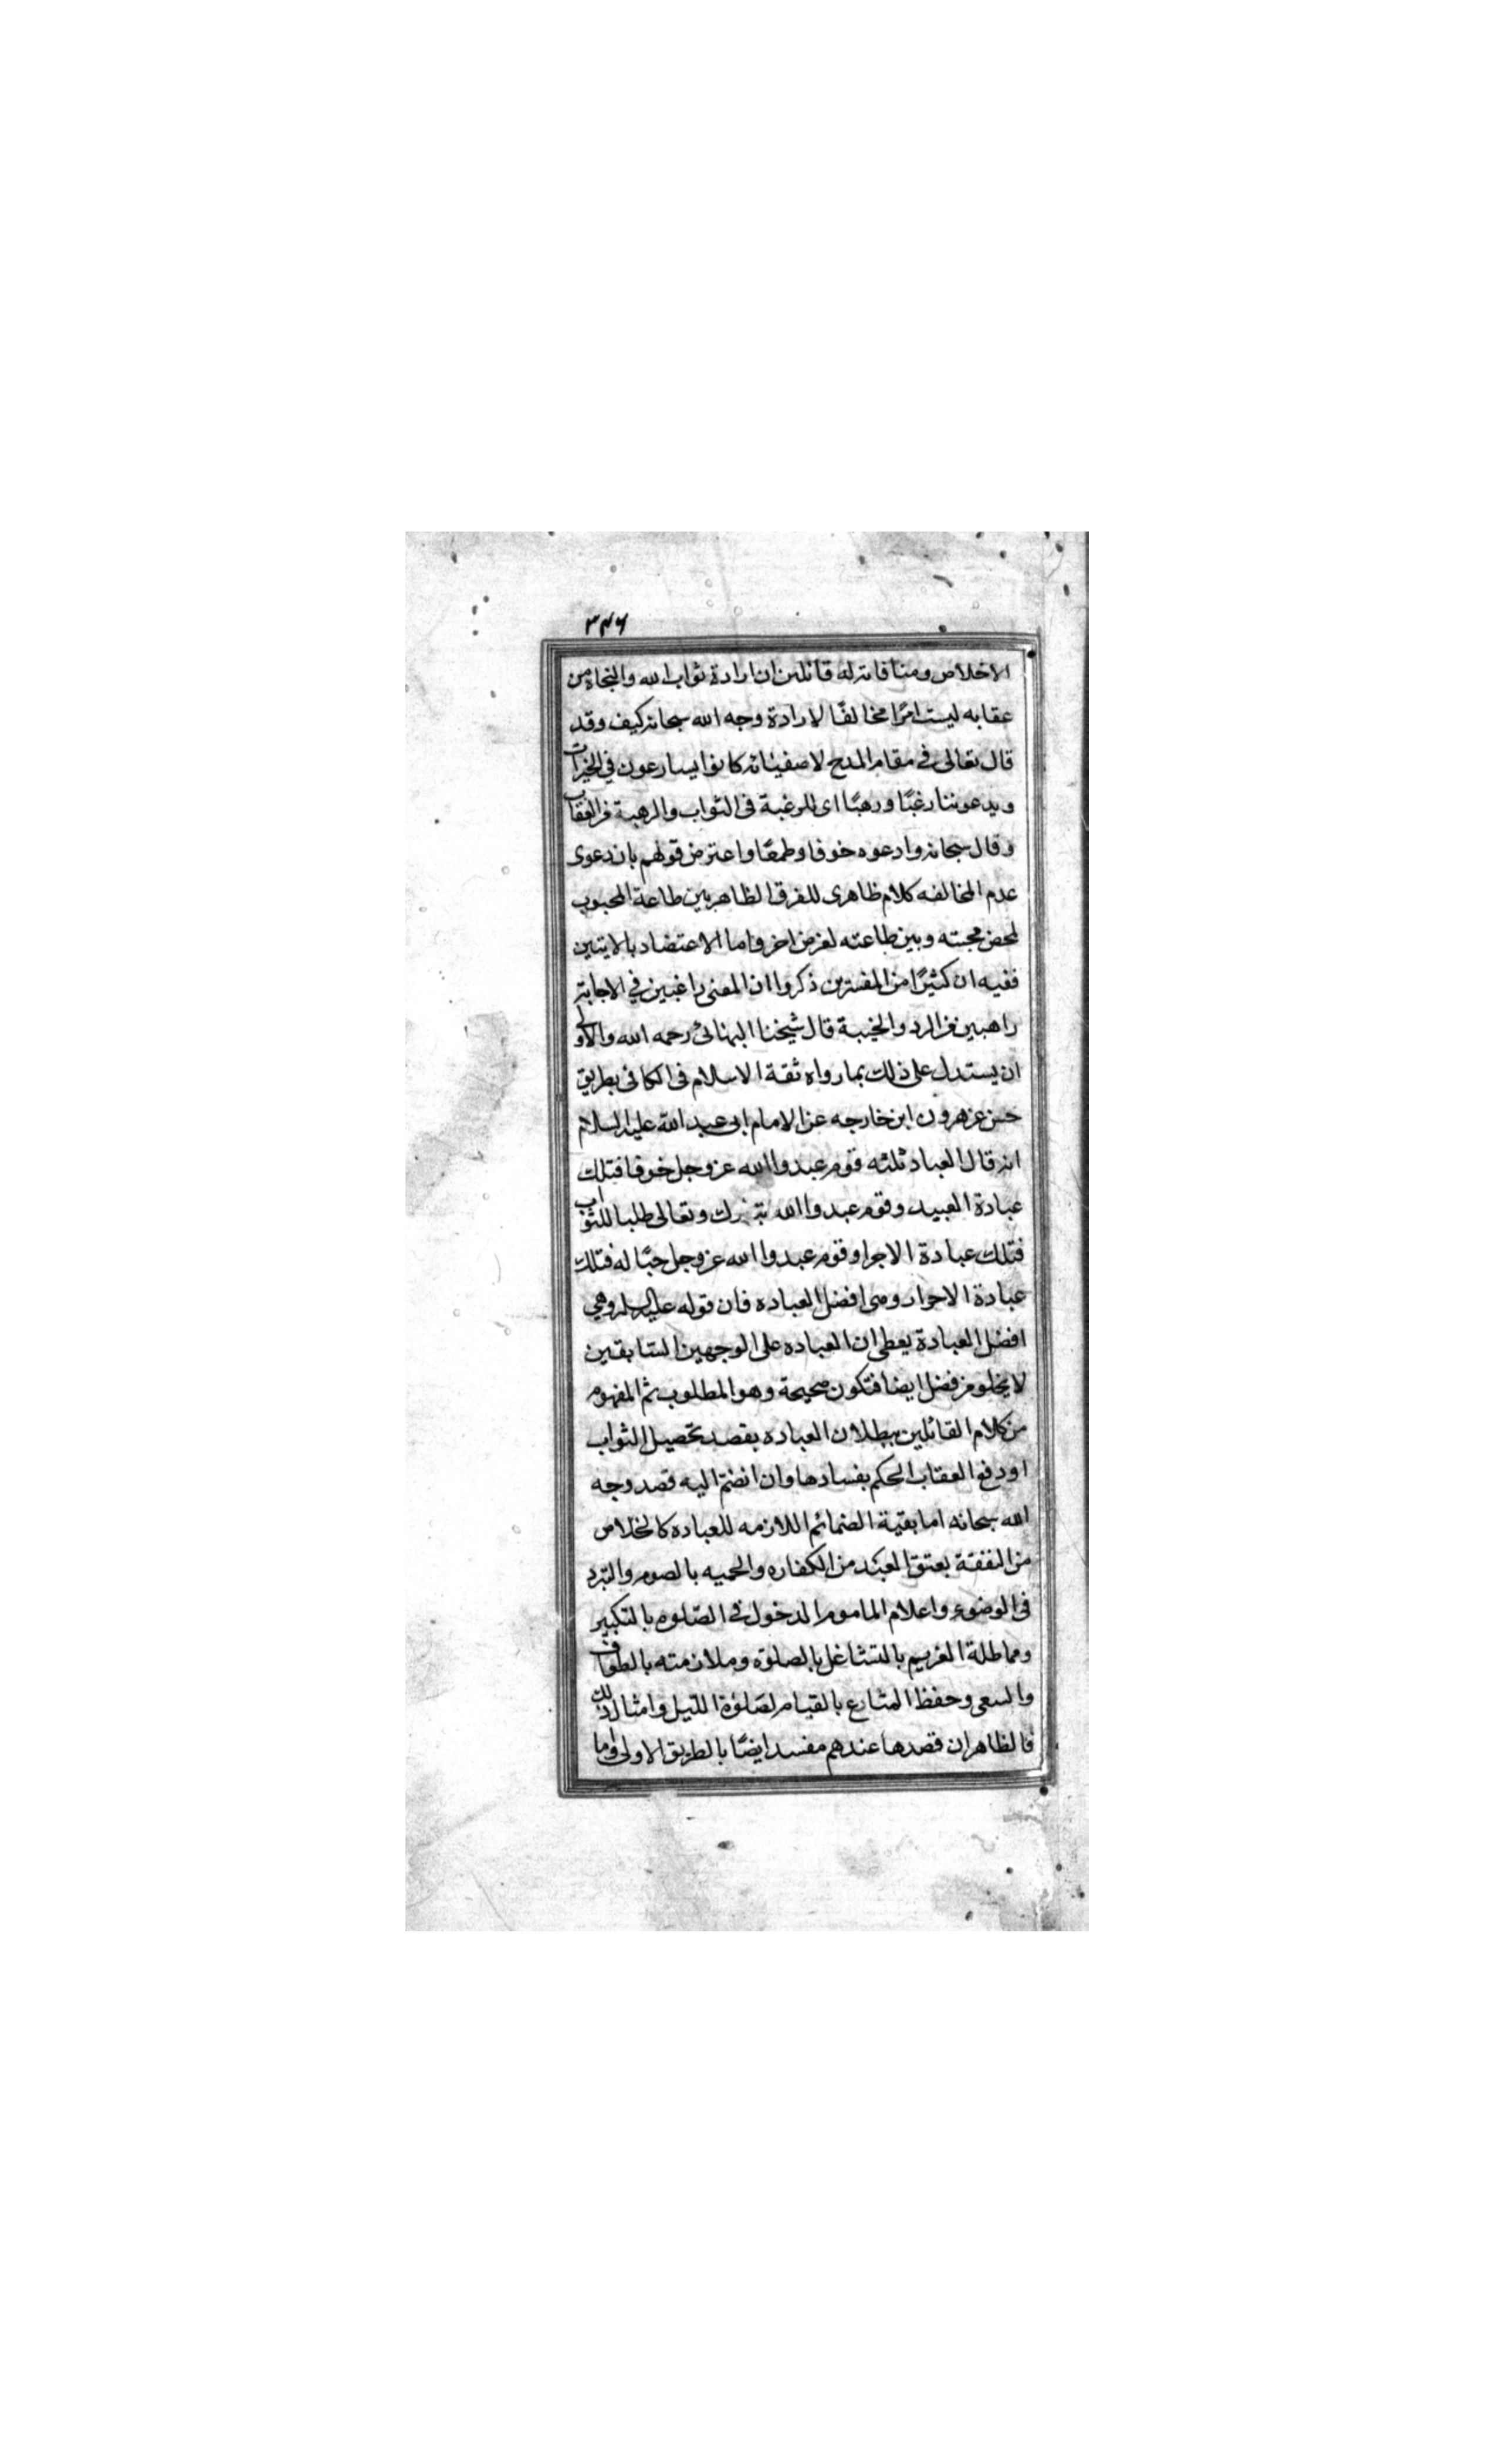 ٣٤٦
الاخلاص ومنافاته له قائلين ان ارادة ثواب الله والنجاة من
عقابه ليست امرًا مخالفًا لارادة وجه الله سبحانه كيف وقد
قال تعالى في مقام المدح لاصفيائه كانوا يسارعون في الخيرات
ويدعوننا رغبًا ورهبًا اى للرغبة فى الثواب والرهبة من العقاب
وقال سبحانه وادعوه خوفا وطمعًا واعترض قولهم بان دعوى
عدم المخالفه كلام ظاهرى للفرق الظاهر بين طاعة المحبوب
لمحض محبته وبين طاعته لغرض اخر واما الاعتضاد بالايتين
ففيه ان كثيرًا من المفسرين ذكروا ان المعنى راغبين في الاجابة
راهبين من الرد والخيبة قال شيخنا البهائى رحمه الله والاولى
ان يستدل على ذلك بما رواه ثقة الاسلام فى الكافى بطريق
حسن عن هرون ابن خارجه عن الامام ابى عبد الله عليه السلام
انه قال العباد ثلثه قوم عبدوا الله عز وجل خوفا فتلك
عبادة العبيد وقوم عبدوا الله تبارك وتعالى طلبا للثواب
فتلك عبادة الاجرا وقوم عبدوا الله عز وجل حبًا له فتلك
عبادة الاحرار وهى افضل العباده فان قوله عليه السلم وهي
افضل العبادة يعطى ان العباده على الوجهين السابقين
لا يخلو من فضل ايضا فتكون صحيحة وهو المطلوب ثم المفهوم
من كلام القائلين ببطلان العباده بقصد تحصيل الثواب
او دفع العقاب الحكم بفسادها وان انضم اليه قصد وجه
الله سبحانه اما بقية الضمائم اللازمه للعباده كالخلاص
من النفقة بعتق العبد من الكفاره والحميه بالصوم والتبرد
فى الوضوء واعلام الماموم الدخول في الصلوه بالتكبير
ومماطلة الغريم بالتشاغل بالصلوة وملازمته بالطواف
والسعى وحفظ المتاع بالقيام لصلوة الليل وامثال ذلك
فالظاهر ان قصدها عندهم مفسد ايضًا بالطريق الاولى واما